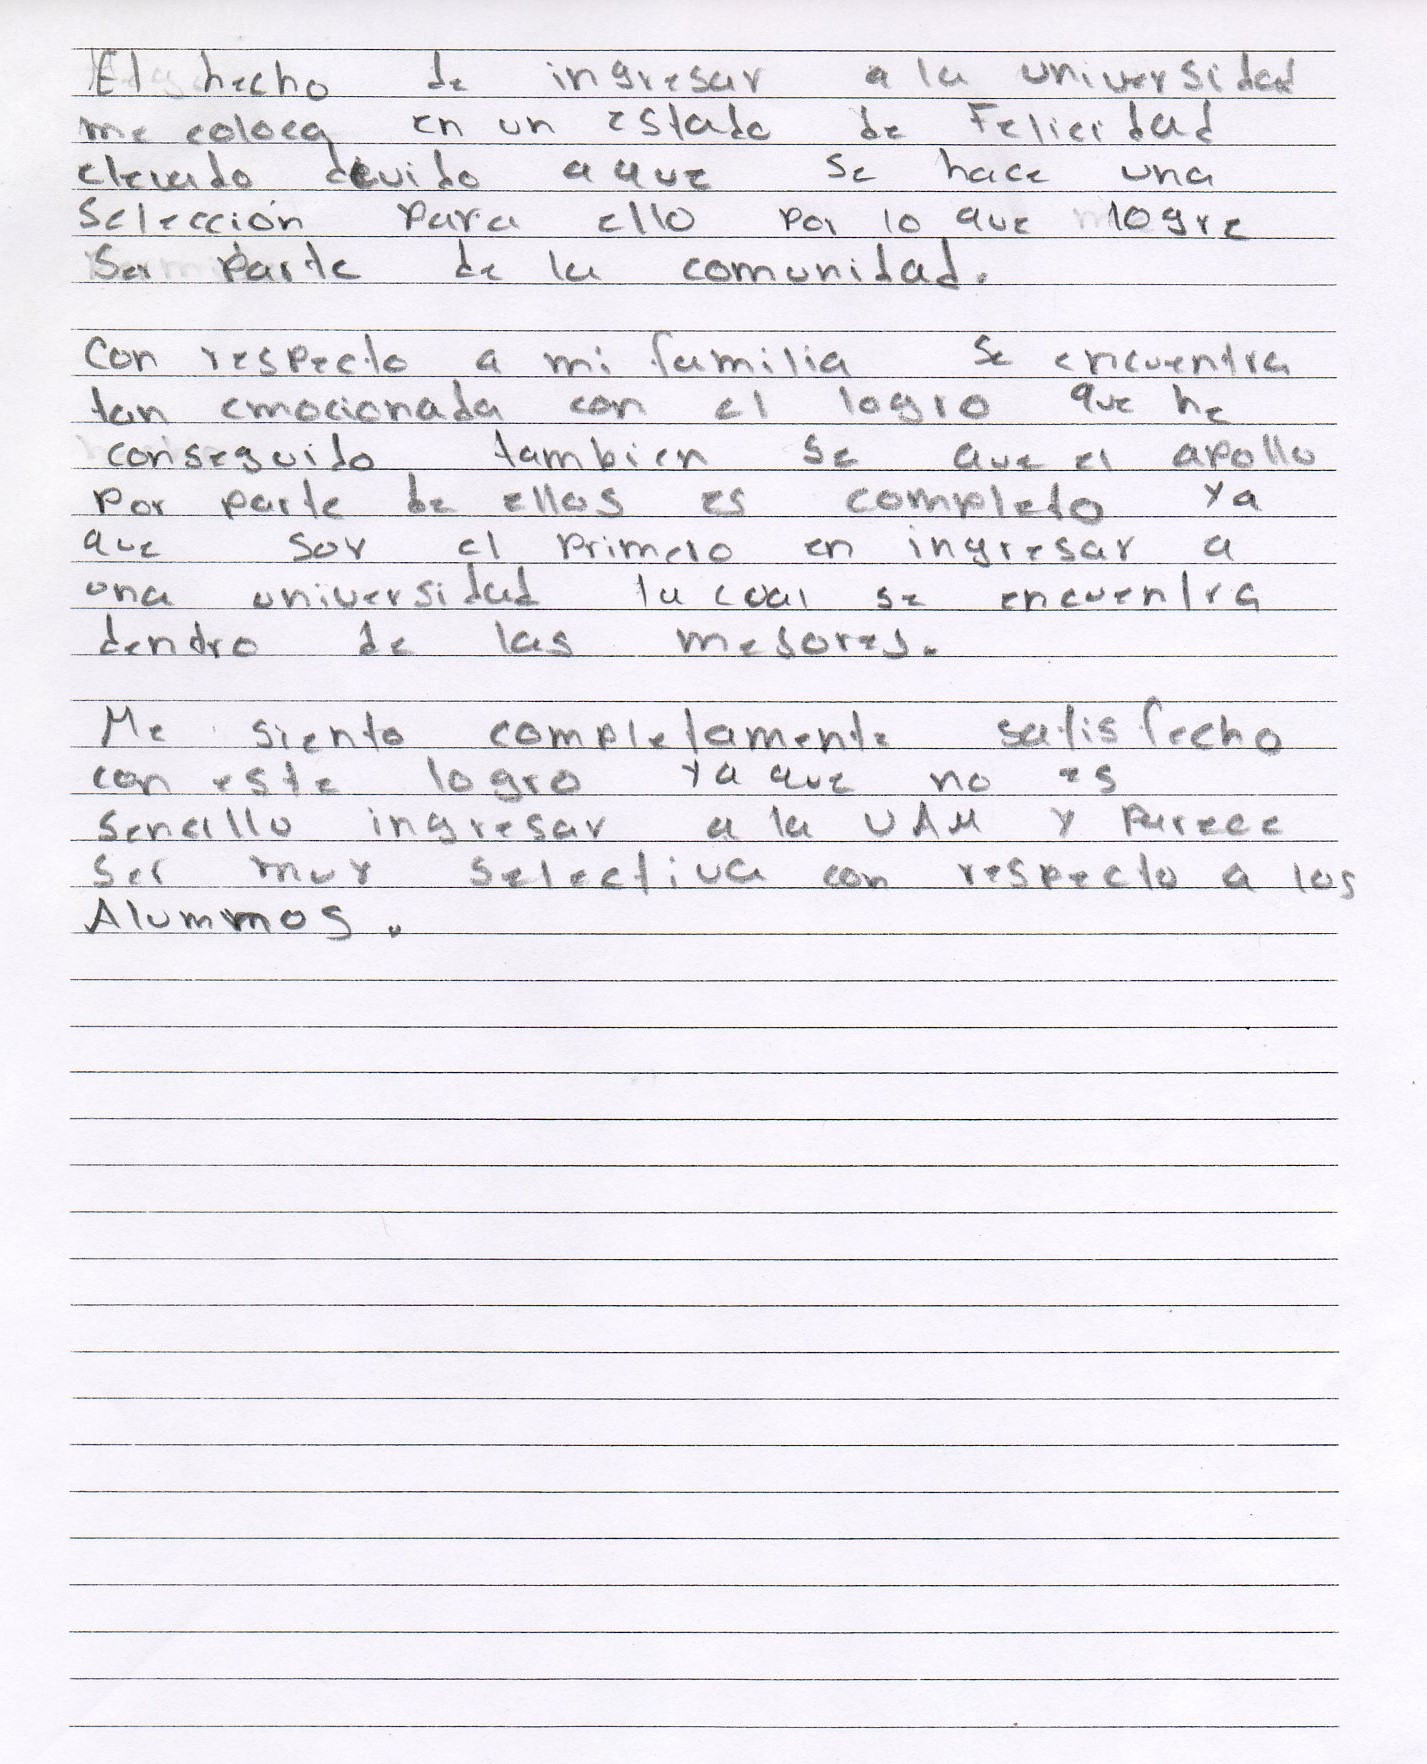 El hecho de ingresar a la universidad
me coloca en un estado de Felicidad
elevado devido a que se hace una
Selección para ello por lo que logre
Ser parte de la comunidad.
Con respecto a mi familia se encuentra
tan emocionada con el logro que he
conseguido tambien se que el apollo
por parte de ellos es completo ya
que soy el primero en ingresar a
una universidad la cual se encuentra
dentro de las mejores.
Me siento completamente satisfecho
con este logro ya que no es
sencillo ingresar a la UAM y parece
ser muy selectiva con respecto a los
Alummos.